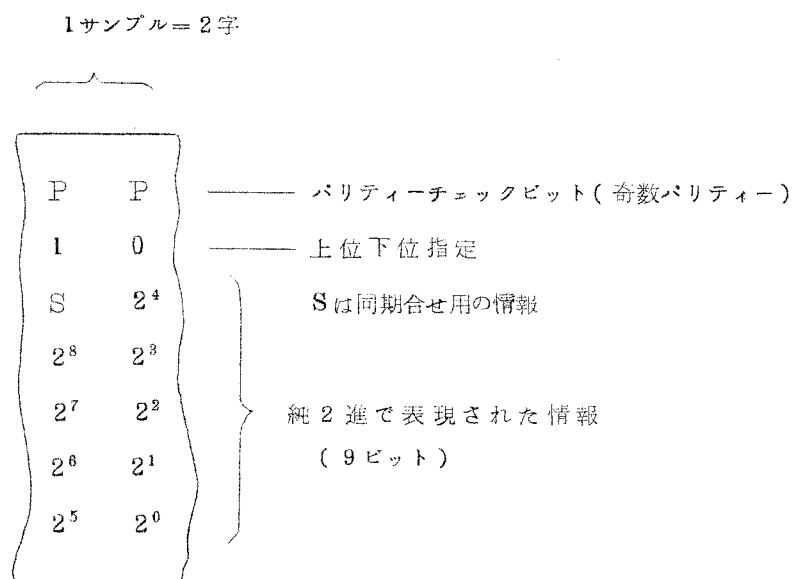 1サンプル=2字
P P パリティーチェックビット(奇数パリティー)
1 0 上位下位指定
S 2⁴ Sは同期合せ用の情報
2⁸ 2³
2⁷ 2² 純2進で表現された情報
2⁶ 2¹ (9ビット)
2⁵ 2⁰